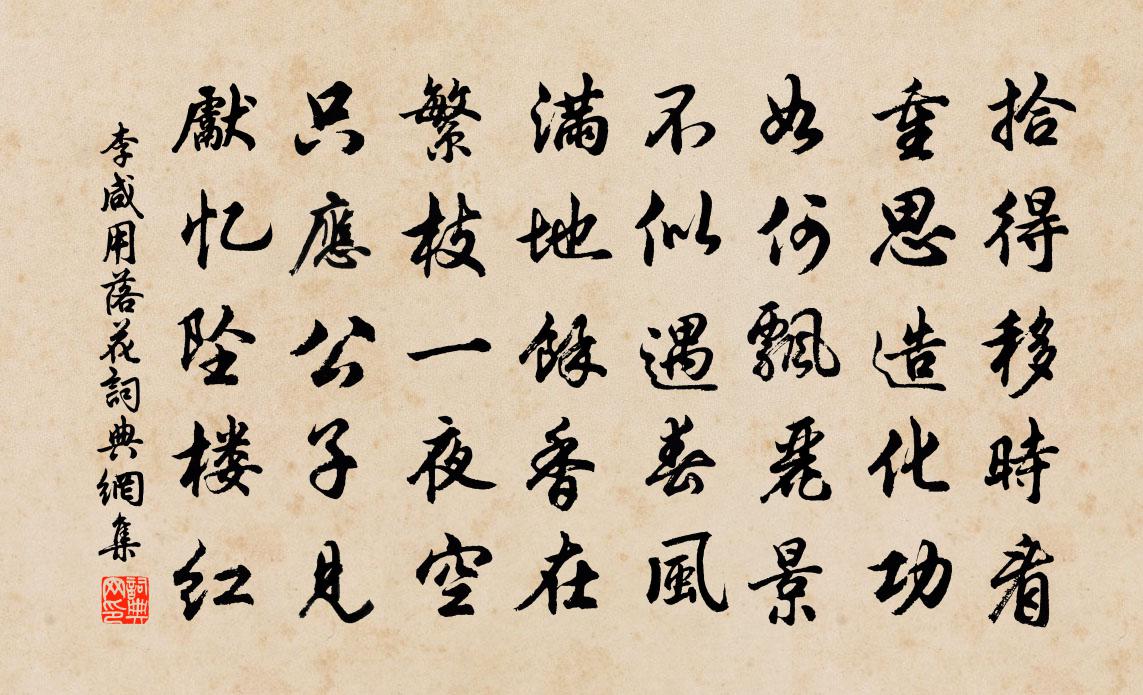 拾得移時看
重思造化功
如何飄麗景
不似遇春風
滿地餘香在
繁枝一夜空
只應公子見
獻忆坠楼红
李咸用落花詞典網集
詞典网印